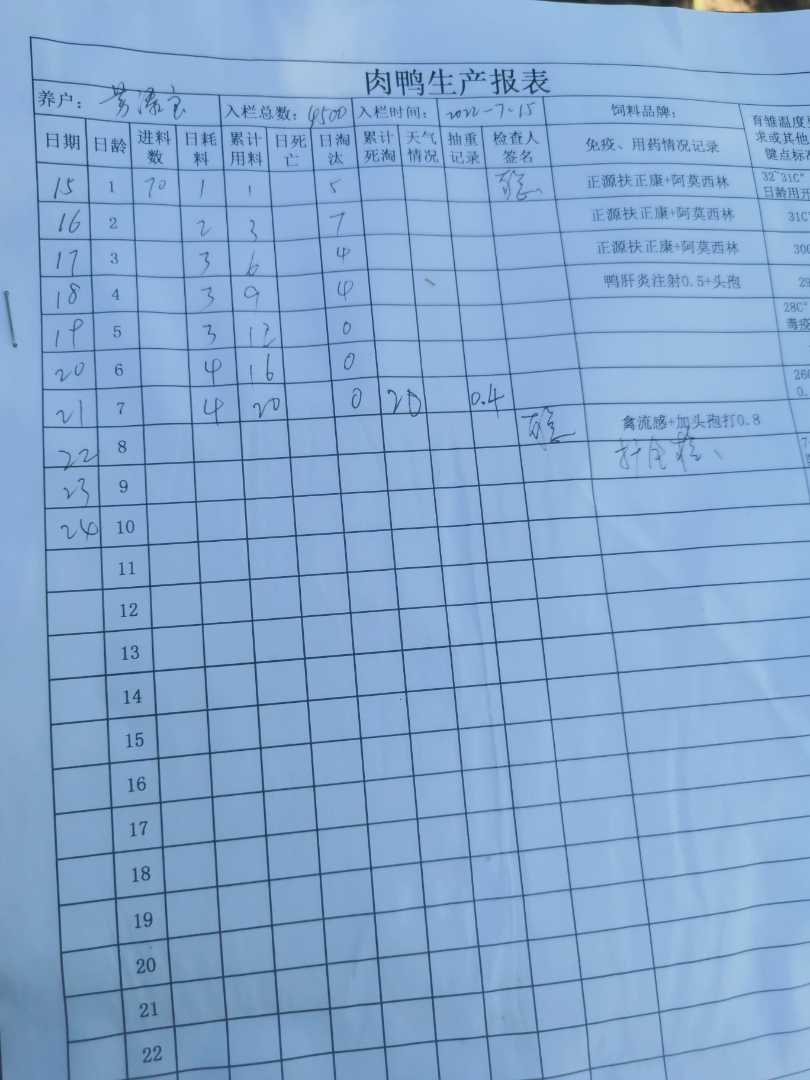 肉鸭生产报表
养户: 入栏总数: 4500 入栏时间: 2022-7-15 饲料品牌:
日期 日龄 进料数 日耗料 累计用料 日死亡 日淘汰 累计死淘 天气情况 抽重记录 检查人签名 免疫、用药情况记录 育雏温度要求或其他
15 1 70 1 1 5 正源扶正康+阿莫西林 32~31C° 日龄用开
16 2 2 3 7 正源扶正康+阿莫西林 31C
17 3 3 6 4 正源扶正康+阿莫西林 300
18 4 3 9 4 鸭肝炎注射0.5+头孢 29
19 5 3 12 0 28C°
20 6 4 16 0
21 7 4 20 0 20 0.4 260
22 8 禽流感+加头孢打0.8
23 9
24 10
11
12
13
14
15
16
17
18
19
20
21
22